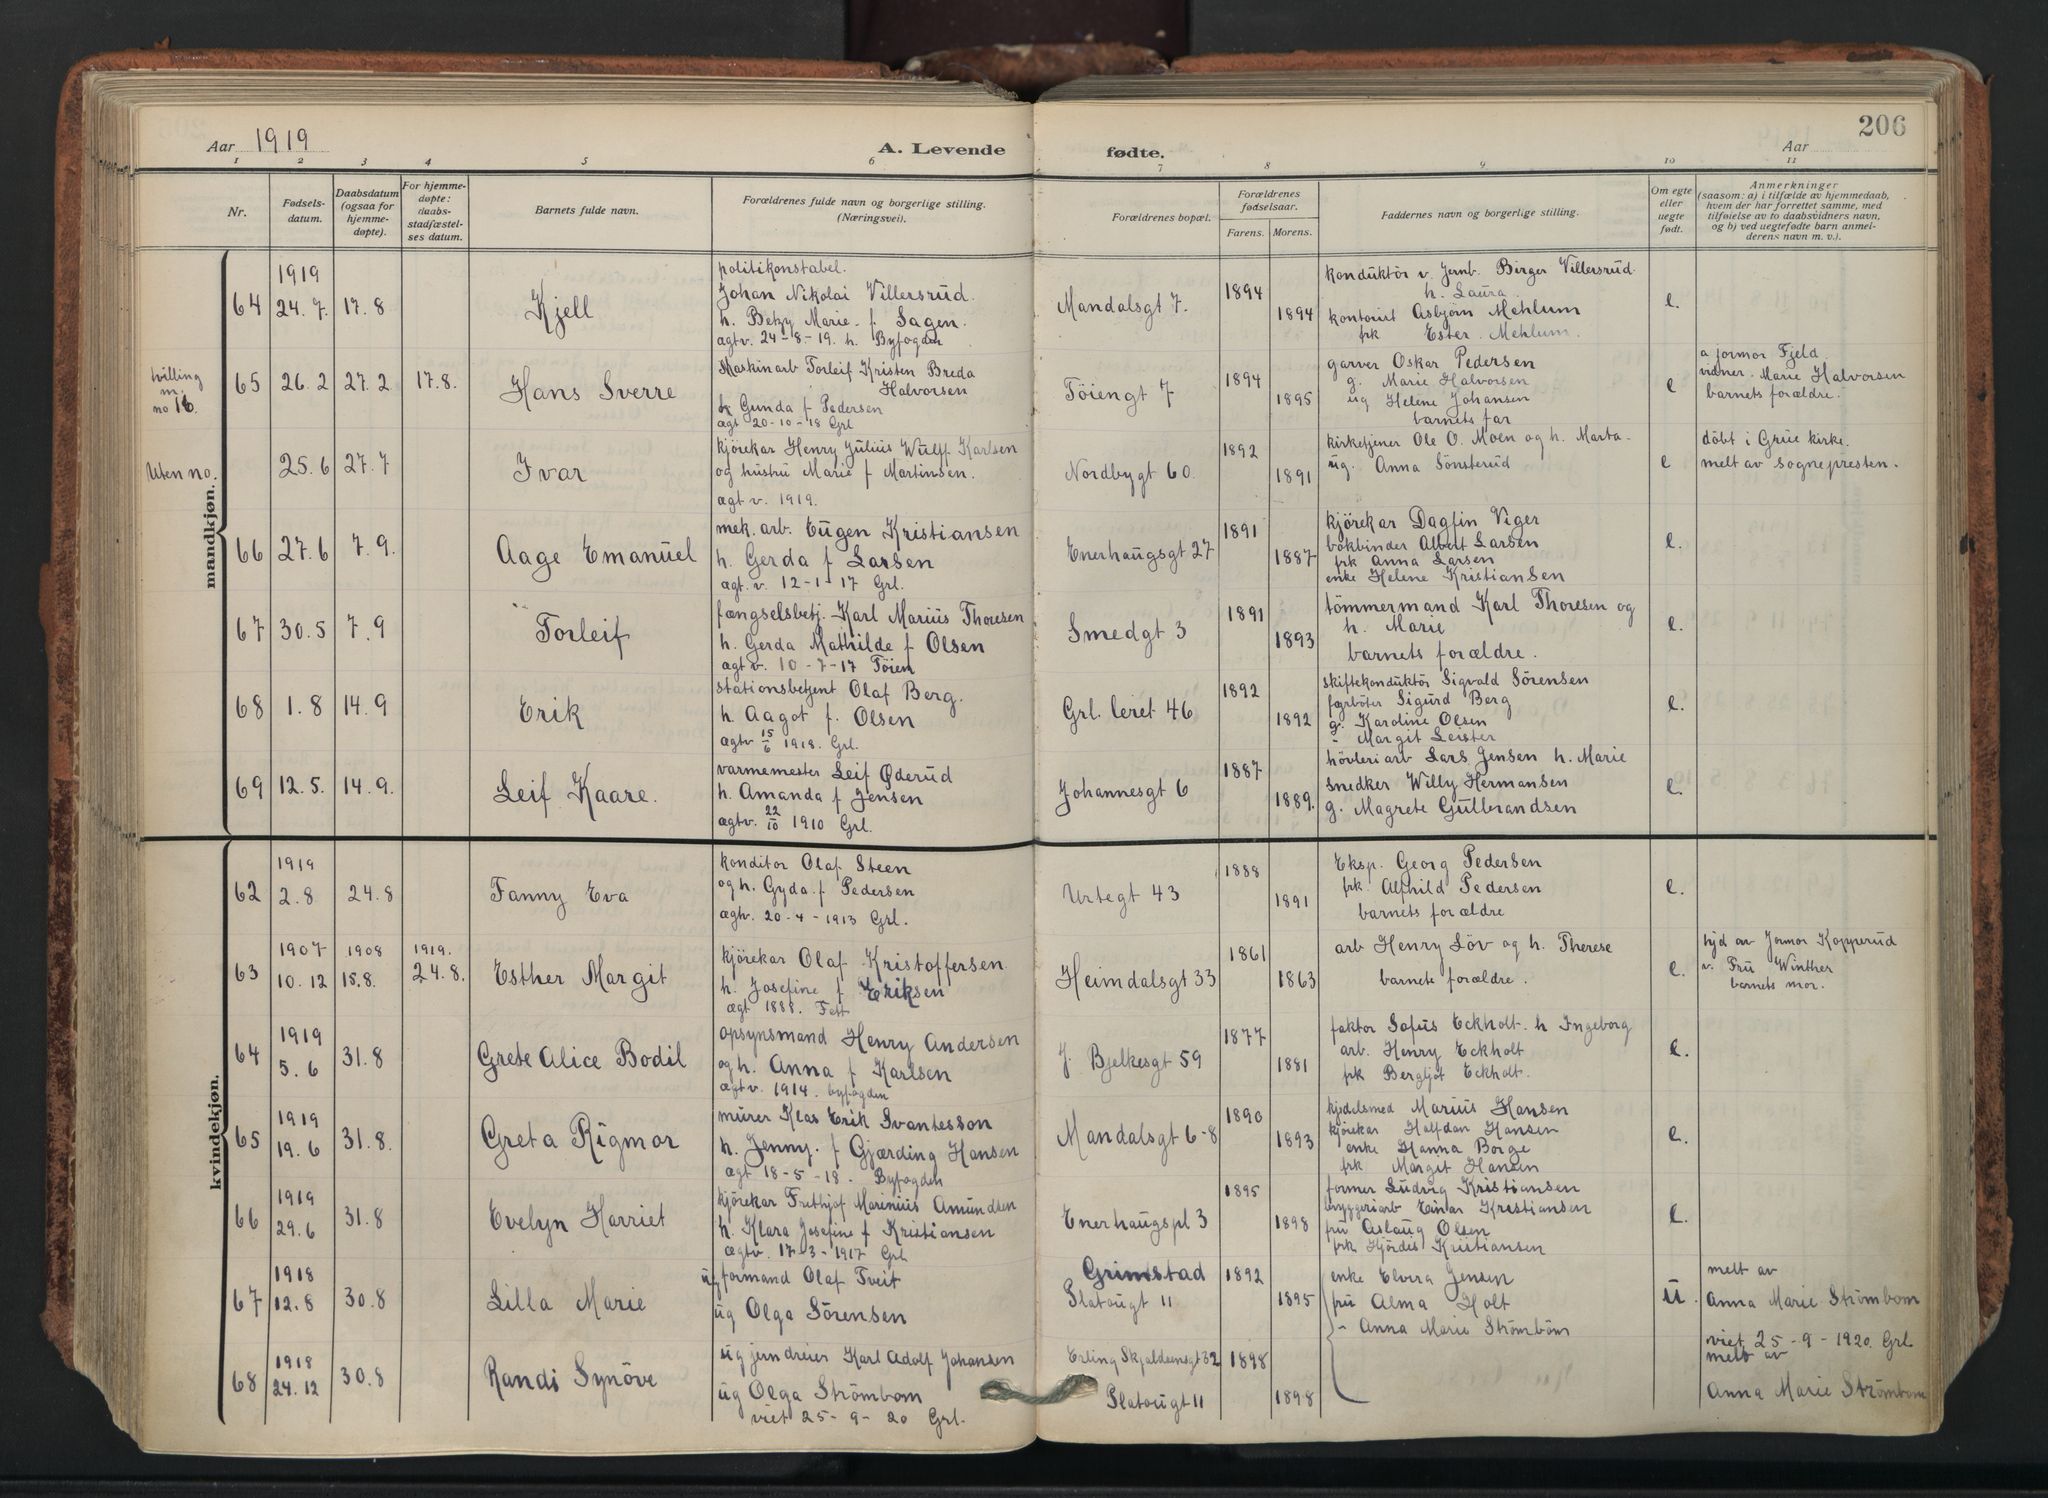 206
Aar 1919 A. Levende fødte. Aar
1 2 3 4 5 6 7 8 9 10 11
Nr.
Fødsels-
datum.
Daabsdatum
(ogsaa for
hjemme-
døpte).
For hjemme-
døpte:
daabs-
stadfæstel-
ses datum.
Barnets fulde navn.
Forældrenes fulde navn og borgerlige stilling.
(Næringsvei).
Forældrenes bopæl.
Forældrenes
fødselsaar.
Farens. Morens.
Faddernes navn og borgerlige stilling.
Om egte
eller
uegte
født.
Anmerkninger
(saasom: a) i tilfælde av hjemmedaab,
hvem der har forrettet samme, med
tilføielse av to daabsvidners navn,
og b) ved uegtefødte barn anmel-
derens navn m. v.).
mandkjøn.
64 1919 24.7 17.8 Kjell
politikonstabel.
Johan Nikolai Villersrud.
h. Betzy Marie f Sagen.
ægt v. 24-8-19. h. Byfogden
Mandalsgt 7. 1894 1894
konduktör v. Jernb. Birger Villersrud.
h. Laura.
kontorist Asbjörn Mehlum
frk Ester Mehlum.
e.
tvilling
m.
no 16.
65 26.2 27.2 17.8. Hans Sverre
Maskinarb Torleif Kristen Breda
Halvorsen
h Gunda f Pedersen
ægt 20-10-18 Grl
Töiengt 7 1894 1895
garver Oskar Pedersen
g. Marie Halvorsen
ug Helene Johansen
barnets far
e
a jormor Fjeld.
vidner. Marie Halvorsen
barnets forældre.
Uten no. 25.6 27.7 Ivar
kjörekar Henry Julius Wulff Karlsen
og hustru Marie f Martinsen.
ægt v. 1919.
Nordbygt 60. 1892 1891
kirketjener Ole O. Moen og h. Marta
ug. Anna Sönsterud
e
döbt i Grue kirke.
melt av sognepresten.
66 27.6 7.9. Aage Emanuel
mek. arb. Eugen Kristiansen
h. Gerda f Larsen
ægt. v. 12-1-17 Grl.
Enerhaugsgt 27 1891 1887
kjörekar Dagfin Viger
bokbinder Albert Larsen
frk Anna Larsen
enke Helene Kristiansen
e.
67 30.5 7.9 Torleif
fængselsbetj. Karl Marius Thoresen
h. Gerda Mathilde f Olsen
ægt v. 10-7-17 Töien
Smedgt 3 1891 1893
tömmermand Karl Thoresen og
h. Marie
barnets forældre.
e.
68 1.8 14.9 Erik
stationsbetjent Olaf Berg.
h. Aagot f. Olsen
ægtv 15/6 1918. Grl.
Grl. leret 46 1892 1892
skiftekonduktör Sigvald Sörensen
færböter Sigurd Berg
g. Karoline Olsen
- Margit Leister
e.
69 12.5. 14.9. Leif Kaare.
varmemester Leif Øderud
h. Amanda f Jensen
ægtv. 22/10 1910 Grl.
Johannesgt 6 1887 1889.
hövleriarb Lars Jensen h. Marie
snedker Willy Hermansen
g. Magrete Gulbrandsen
e.
kvindekjøn.
62 1919 2.8 24.8 Fanny Eva
konditor Olaf Steen
og h. Gyda f Pedersen
ægtv. 20-4-1913 Grl.
Urtegt 43 1888 1891
Eksp. Georg Pedersen
frk. Alfhild Pedersen
barnets forældre
e.
63 1907 10.12 1908 15.8. 1919. 24.8. Esther Margit
kjörekar Olaf Kristoffersen
h. Josefine f Eriksen
ægt 1888. Fett
Heimdalsgt 33 1861 1863
arb Henry Löv og h. Therese
barnets forældre.
e.
hjd av Jormor Kopperud
v. Fru Winther
barnets mor.
64 1919 5.6 31.8 Grete Alice Bodil
opsynsmand Henry Andersen
og h. Anna f Karlsen
ægt v. 1914. byfogden
J. Bjelkesgt 59 1877 1881
faktor Sofus Eckholt. h Ingeborg
arb. Henry Eckholt
frk Bergljot Eckholt.
e.
65 1919 19.6 31.8. Greta Rigmor
murer Klas Erik Svantesson
h. Jenny f Gjærding Hansen
ægt 18-5-18. Byfogden
Mandalsgt 6-8 1890 1893
kjedelsmed Marius Hansen
kjörekar Halfdan Hansen
enke Hanna Borge
frk Margit Hansen
e.
66 1919 29.6 31.8 Evelyn Harriet
kjörekar Frithjof Marenius Amundsen
h. Klara Josefine f Kristiansen
ægtv. 17-3-1917 Grl
Enerhaugspl 3 1895 1898
former Ludvig Kristiansen
bryggeriarb Einar Kristiansen
fru Aslaug Olsen
frk Hjördis Kristiansen
e.
67 1918 12.8 30.8 Lilla Marie
ug formand Olaf Tveit
ug Olga Sörensen
Grimstad
Platougt 11 1892 1895
enke Elvira Jensen
fru Alma Holt
- Anna Marie Strömbom
u.
melt av
Anna Marie Strömbom
68 1918 24.12 30.8 Randi Synöve
ug jerndreier Karl Adolf Johansen
ug Olga Strömbom
viet 25-9-20 Grl.
Erling Skjaldsensgt 32
Platougt 11 1898 1898
viet 25-9-1920. Grl
melt av
Anna Marie Strömbom